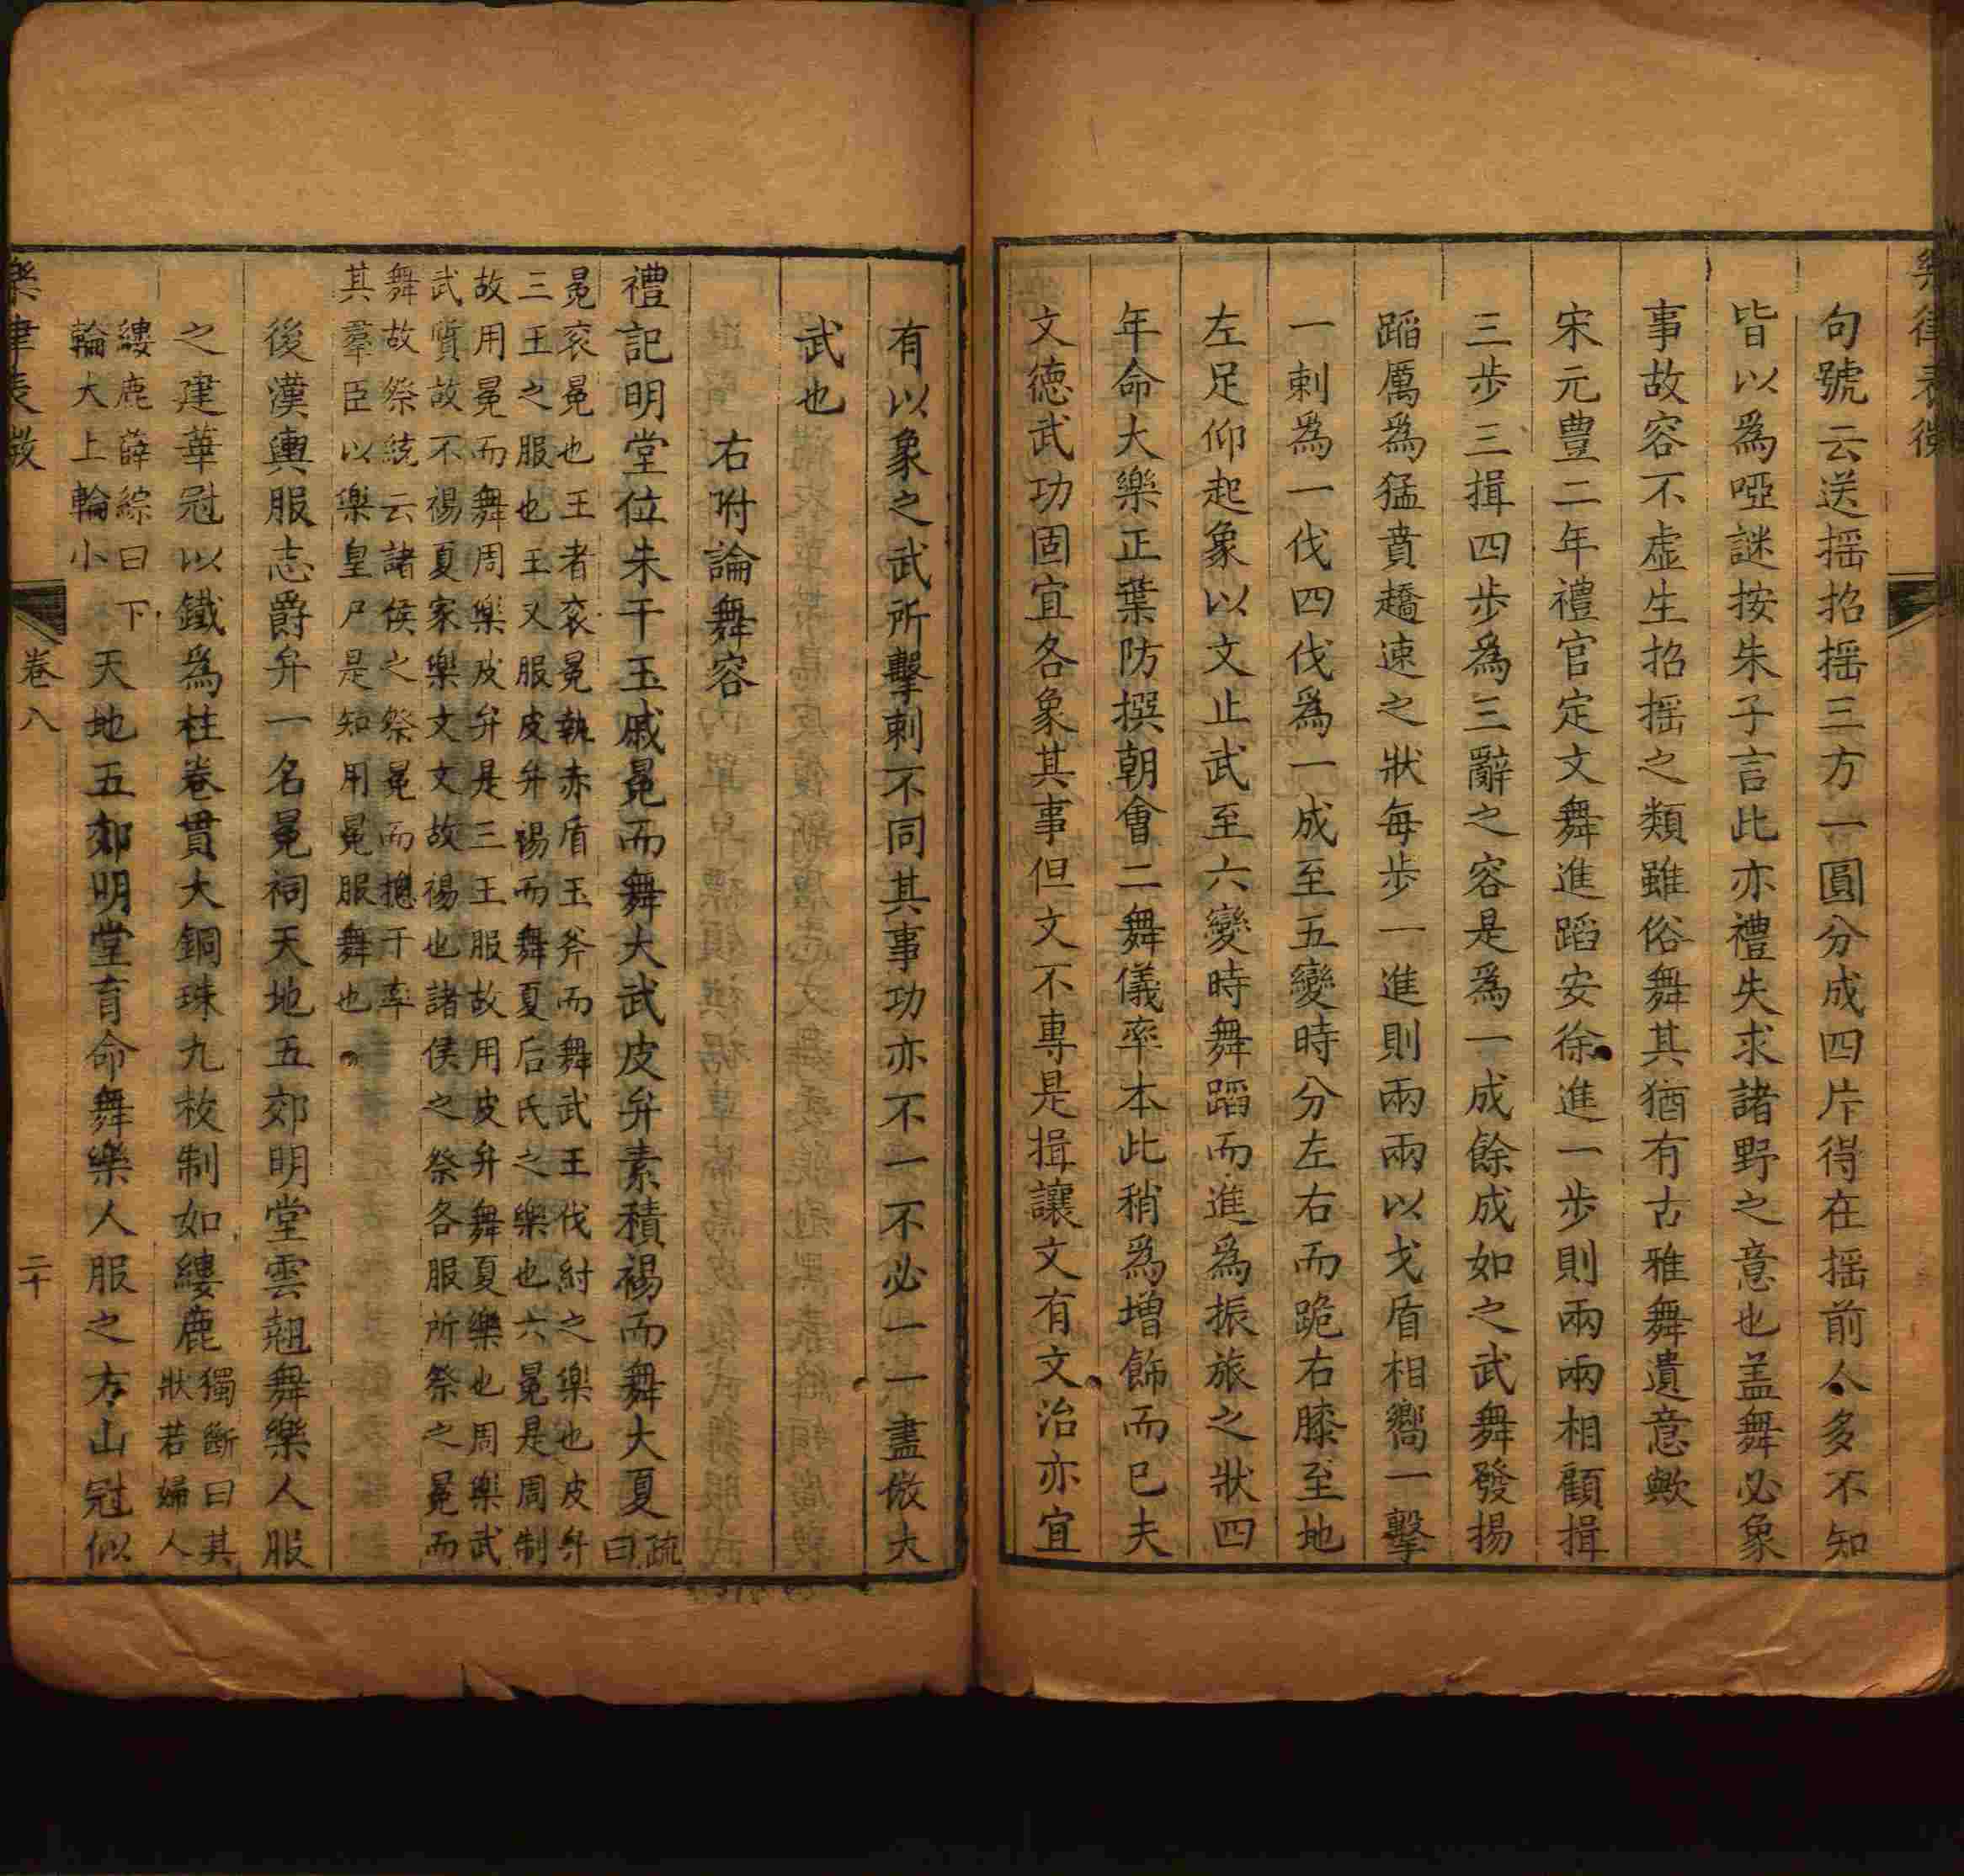 樂律表微
句號云送搖招搖三方一圓分成四片得在搖前人多不知
皆以爲啞謎按朱子言此亦禮失求諸野之意也盖舞必象
事故容不虛生招搖之類雖俗舞其猶有古雅舞遺意歟
宋元豊二年禮官定文舞進蹈安徐進一步則兩兩相顧揖
三步三揖四步爲三辭之容是爲一成餘成如之武舞發揚
蹈厲爲猛賁趫速之狀每步一進則兩兩以戈盾相嚮一擊
一刺爲一伐四伐爲一成至五變時分左右而跪右膝至地
左足仰起象以文止武至六變時舞蹈而進爲振旅之狀四
年命大樂正葉防撰朝會二舞儀率本此稍爲增飾而已夫
文德武功固宜各象其事但文不專是揖讓文有文治亦宜
有以象之武所擊刺不同其事功亦不一不必一一盡倣大
武也
右附論舞容
禮記明堂位朱干玉戚冕而舞大武皮弁素積裼而舞大夏疏曰
冕衮冕也王者衮冕執赤盾玉斧而舞武王伐紂之樂也皮弁
三王之服也王又服皮弁裼而舞夏后氏之樂也六冕是周制
故用冕而舞周樂皮弁是三王服故用皮弁舞夏樂也周樂武
武質故不裼夏家樂文文故裼也諸侯之祭各服所祭之冕而
舞故祭統云諸侯之祭冕而摠干率
其羣臣以樂皇尸是知用冕服舞也
後漢輿服志爵弁一名冕祠天地五郊明堂雲翹舞樂人服
之建華冠以鐵爲柱卷貫大銅珠九枚制如縷鹿獨斷曰其狀若婦人
縷鹿薛綜曰下輪大上輪小天地五郊明堂育命舞樂人服之方山冠似
樂律表微
卷八
二十